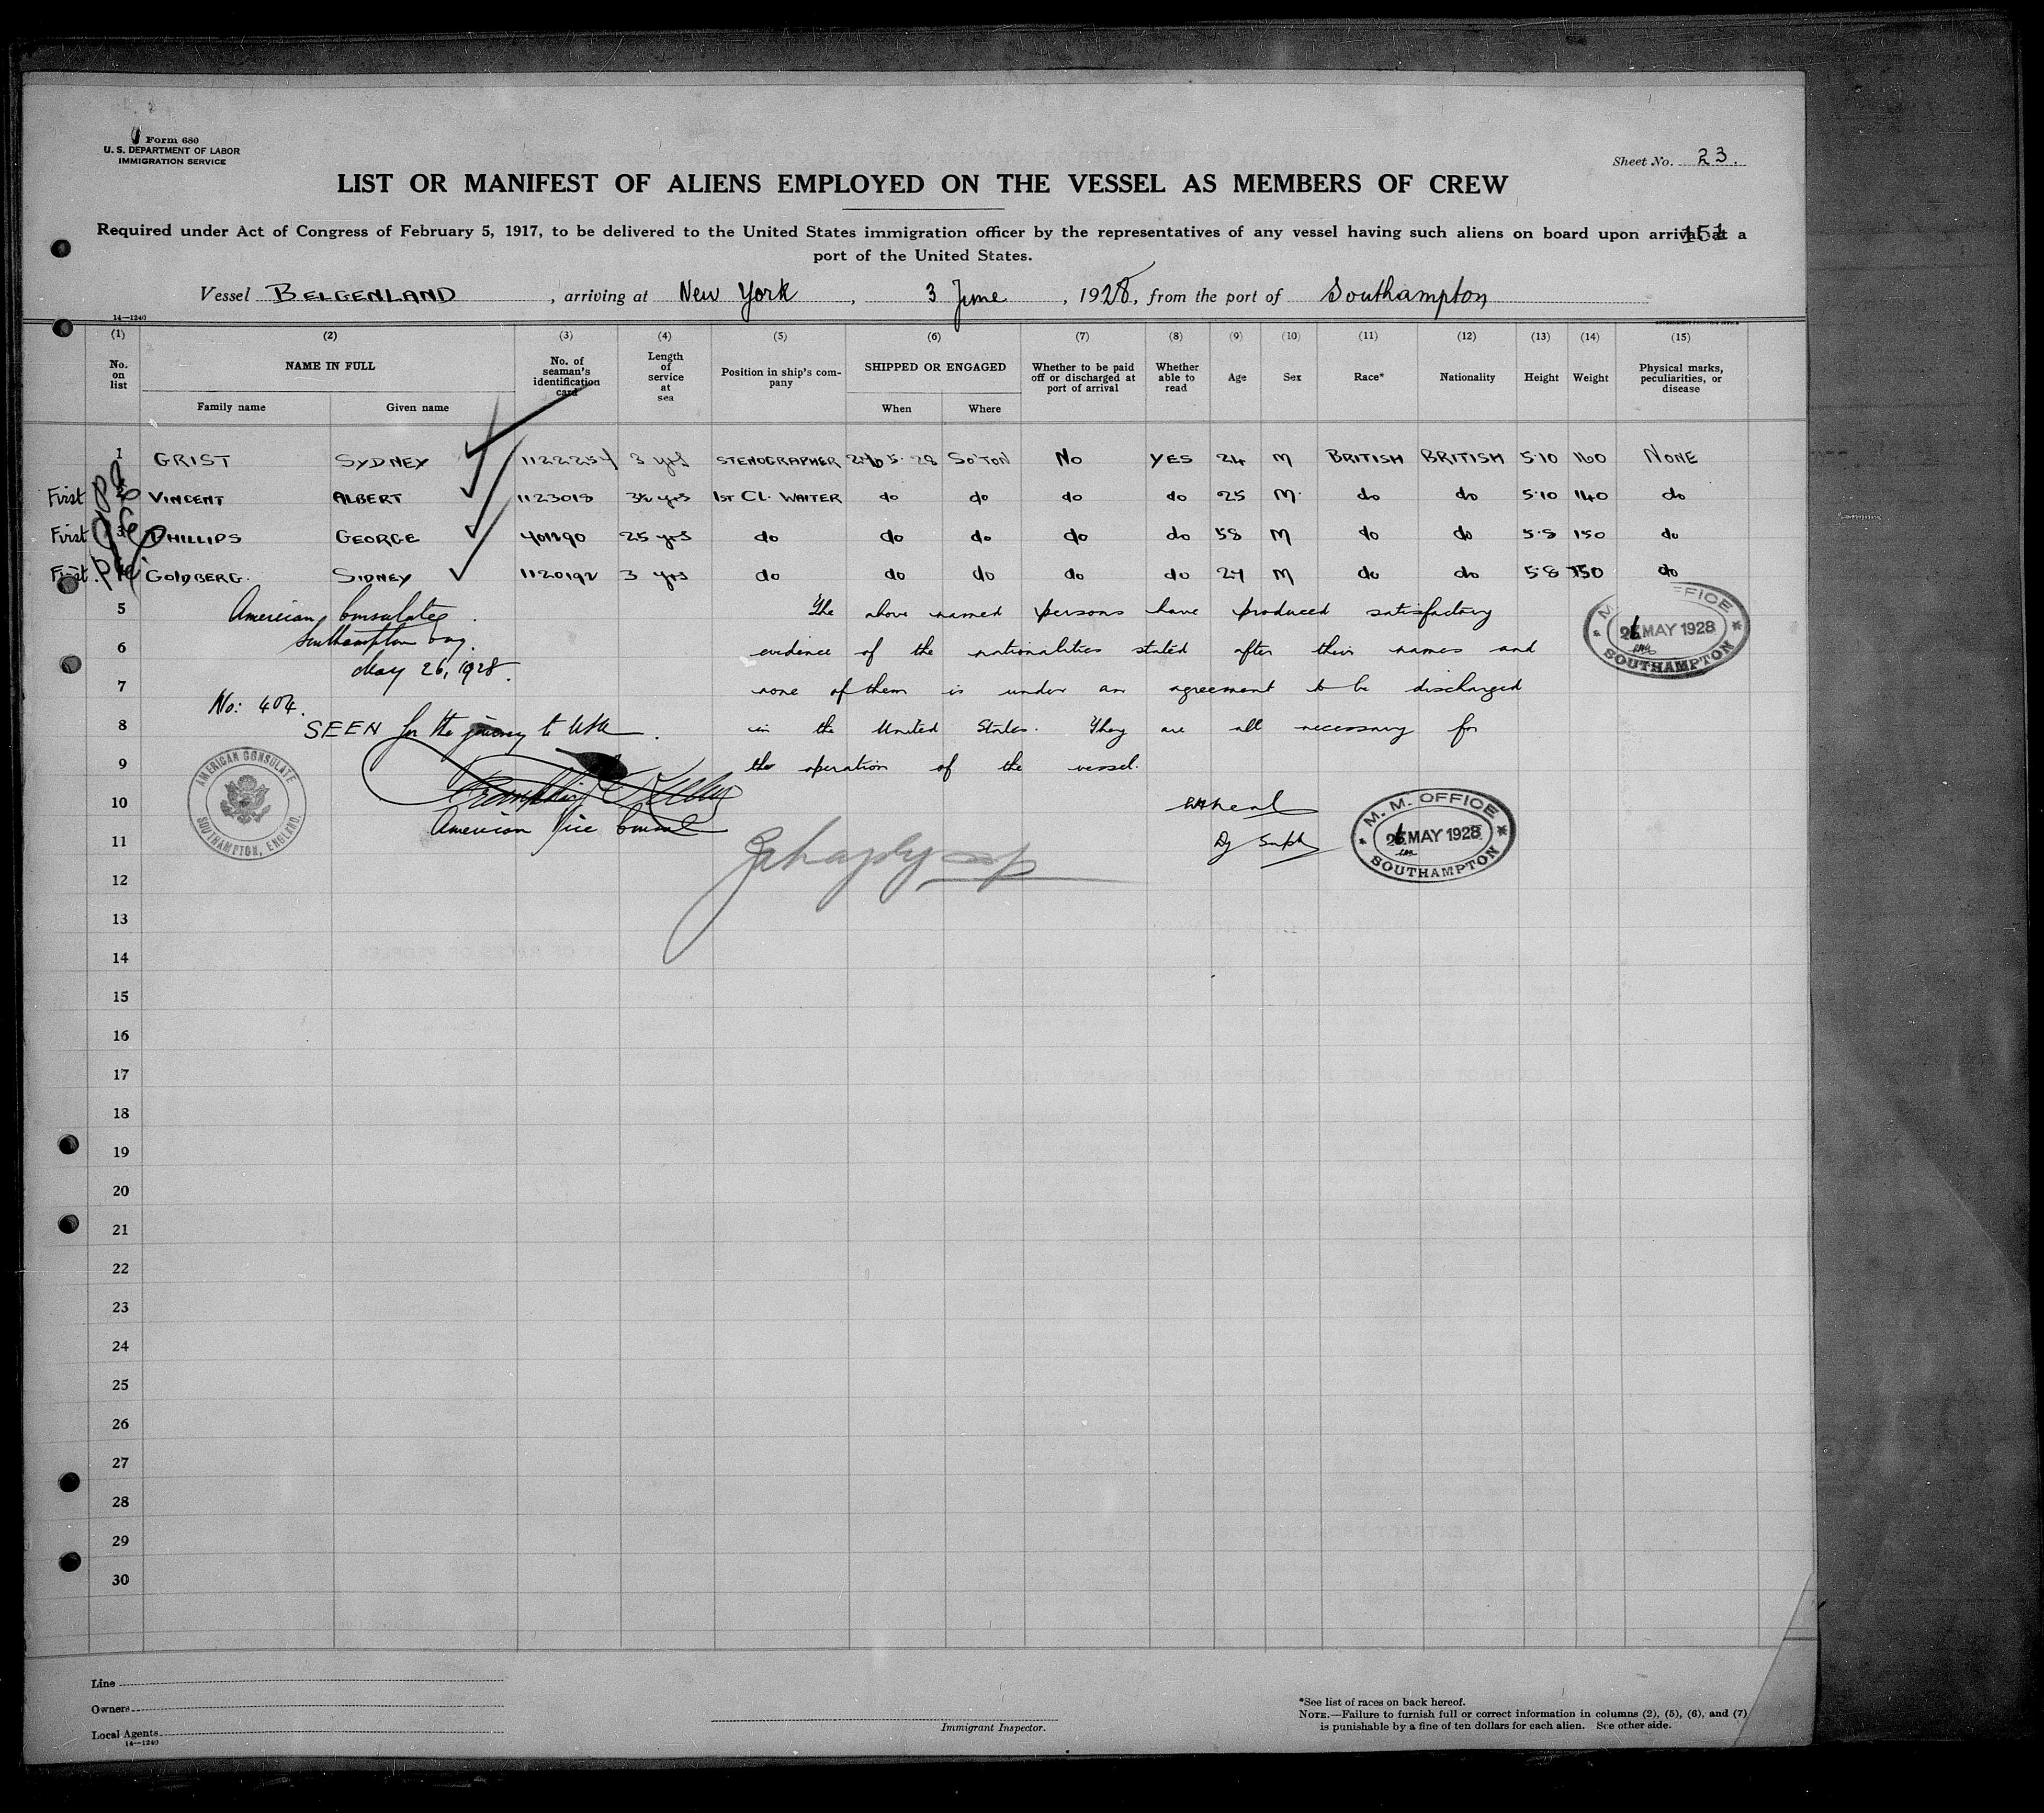 Form 680
U. S. DEPARTMENT OF LABOR
IMMIGRATION SERVICE
Sheet No. 23.
LIST OR MANIFEST OF ALIENS EMPLOYED ON THE VESSEL AS MEMBERS OF CREW
Required under Act of Congress of February 5, 1917, to be delivered to the United States immigration officer by the representatives of any vessel having such aliens on board upon arrival at a
151
port of the United States.
Vessel BELGENLAND, arriving at New York, 3 June, 1928, from the port of Southampton
14—1240
GOVERNMENT PRINTING OFFICE
(1) (2) (3) (4) (5) (6) (7) (8) (9) (10) (11) (12) (13) (14) (15)
No. on list
NAME IN FULL
Family name
Given name
No. of seaman's identification card
Length of service at sea
Position in ship's company
SHIPPED OR ENGAGED
When
Where
Whether to be paid off or discharged at port of arrival
Whether able to read
Age
Sex
Race*
Nationality
Height
Weight
Physical marks, peculiarities, or disease
1 GRIST SYDNEY 3 yrs STENOGRAPHER 5. 28 SO'TON NO YES 24 M BRITISH BRITISH 5·10 160 NONE
First VINCENT ALBERT 1123018 3½ yrs 1ST CL. WAITER do do do do 25 M. do do 5·10 140 do
First 3 PHILLIPS GEORGE 25 yrs do do do do do 58 M do do 5·8 150 do
First GOLDBERG. SIDNEY 1120192 3 yrs do do do do do 24 M do do 5·8 150 do
5
American Consulate
Southampton Eng.
May 26, 1928.
No: 404.
SEEN for the journey to USA.
American Vice Consul
AMERICAN CONSULATE
SOUTHAMPTON, ENGLAND.
The above named persons have produced satisfactory
evidence of the nationalities stated after their names and
none of them is under an agreement to be discharged
in the United States. They are all necessary for
the operation of the vessel.
Dy Supt
M. M. OFFICE
26 MAY 1928
SOUTHAMPTON
OFFICE
26 MAY 1928
SOUTHAMPTON
6
7
8
9
10
11
12
13
14
15
16
17
18
19
20
21
22
23
24
25
26
27
28
29
30
Line
Owners
Local Agents
14—1240
Immigrant Inspector.
*See list of races on back hereof.
NOTE.—Failure to furnish full or correct information in columns (2), (5), (6), and (7)
is punishable by a fine of ten dollars for each alien. See other side.